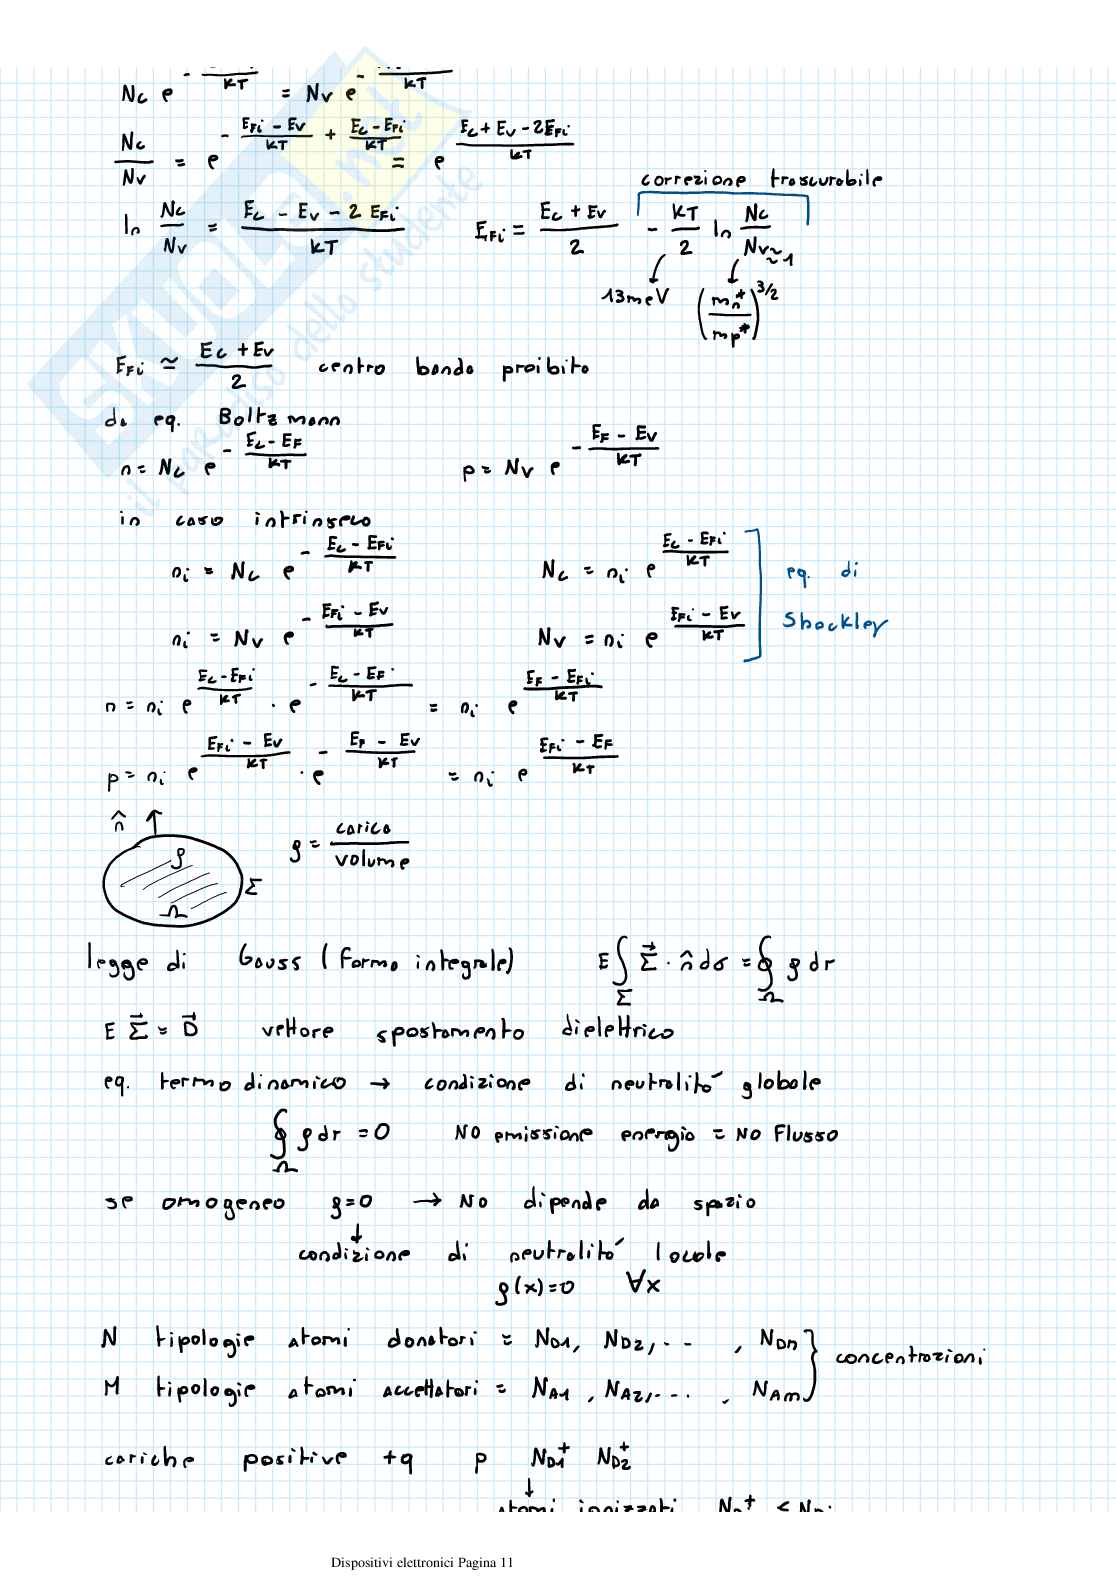 Nc e^(-.../KT) = Nv e^(-.../KT)
Nc/Nv = e^(- (EFi - Ev)/KT + (Ec - EFi)/KT) = e^((Ec + Ev - 2EFi)/KT)
correzione trascurabile
ln Nc/Nv = (Ec - Ev - 2 EFi)/KT   EFi = (Ec + Ev)/2 - KT/2 ln Nc/Nv ≃ 1
13meV   (mn*/mp*)^3/2
EFi ≃ (Ec + Ev)/2   centro banda proibita
da eq. Boltzmann
n = Nc e^(- (Ec - EF)/KT)   p = Nv e^(- (EF - Ev)/KT)
in caso intrinseco
ni = Nc e^(- (Ec - EFi)/KT)   Nc = ni e^((Ec - EFi)/KT)   eq. di
ni = Nv e^(- (EFi - Ev)/KT)   Nv = ni e^((EFi - Ev)/KT)   Shockley
n = ni e^((Ec - EFi)/KT) · e^(- (Ec - EF)/KT) = ni e^((EF - EFi)/KT)
p = ni e^((EFi - Ev)/KT) · e^(- (EF - Ev)/KT) = ni e^((EFi - EF)/KT)
n̂   ρ   Σ   Ω   ρ = carica/volume
legge di Gauss (forma integrale)   E ∫Σ Σ⃗ · n̂ dσ = ∮Ω ρ dr
E Σ⃗ = D⃗   vettore spostamento dielettrico
eq. termodinamico → condizione di neutralitá globale
∮Ω ρ dr = 0   NO emissione energia = NO Flusso
se omogeneo ρ=0 → NO dipende da spazio
↓
condizione di neutralitá locale
ρ(x)=0   ∀x
N tipologie atomi donatori = ND1, ND2, ... , NDn } concentrazioni
M tipologie atomi accettatori = NA1, NA2, ... , NAm
cariche positive +q   p   ND1+   ND2+
↓
atomi ionizzati
Dispositivi elettronici Pagina 11
SKUOLA.net
il paradiso dello studente